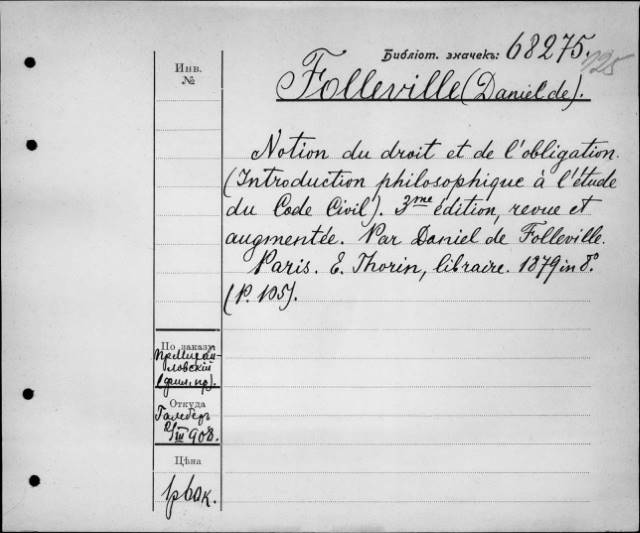 Библіот. значекъ: 68275.
125
Инв.
№
Folleville (Daniel de).
Notion du droit et de l'obligation.
(Introduction philosophique à l'étude
du Code Civil). 3me édition, revue et
augmentée. Par Daniel de Folleville.
Paris. E. Thorin, libraire. 1879 in 8°.
(P. 105).
По заказу
пр. Михай-
ловскій
Откуда
2/III 908.
Цѣна
1 р 60 к.